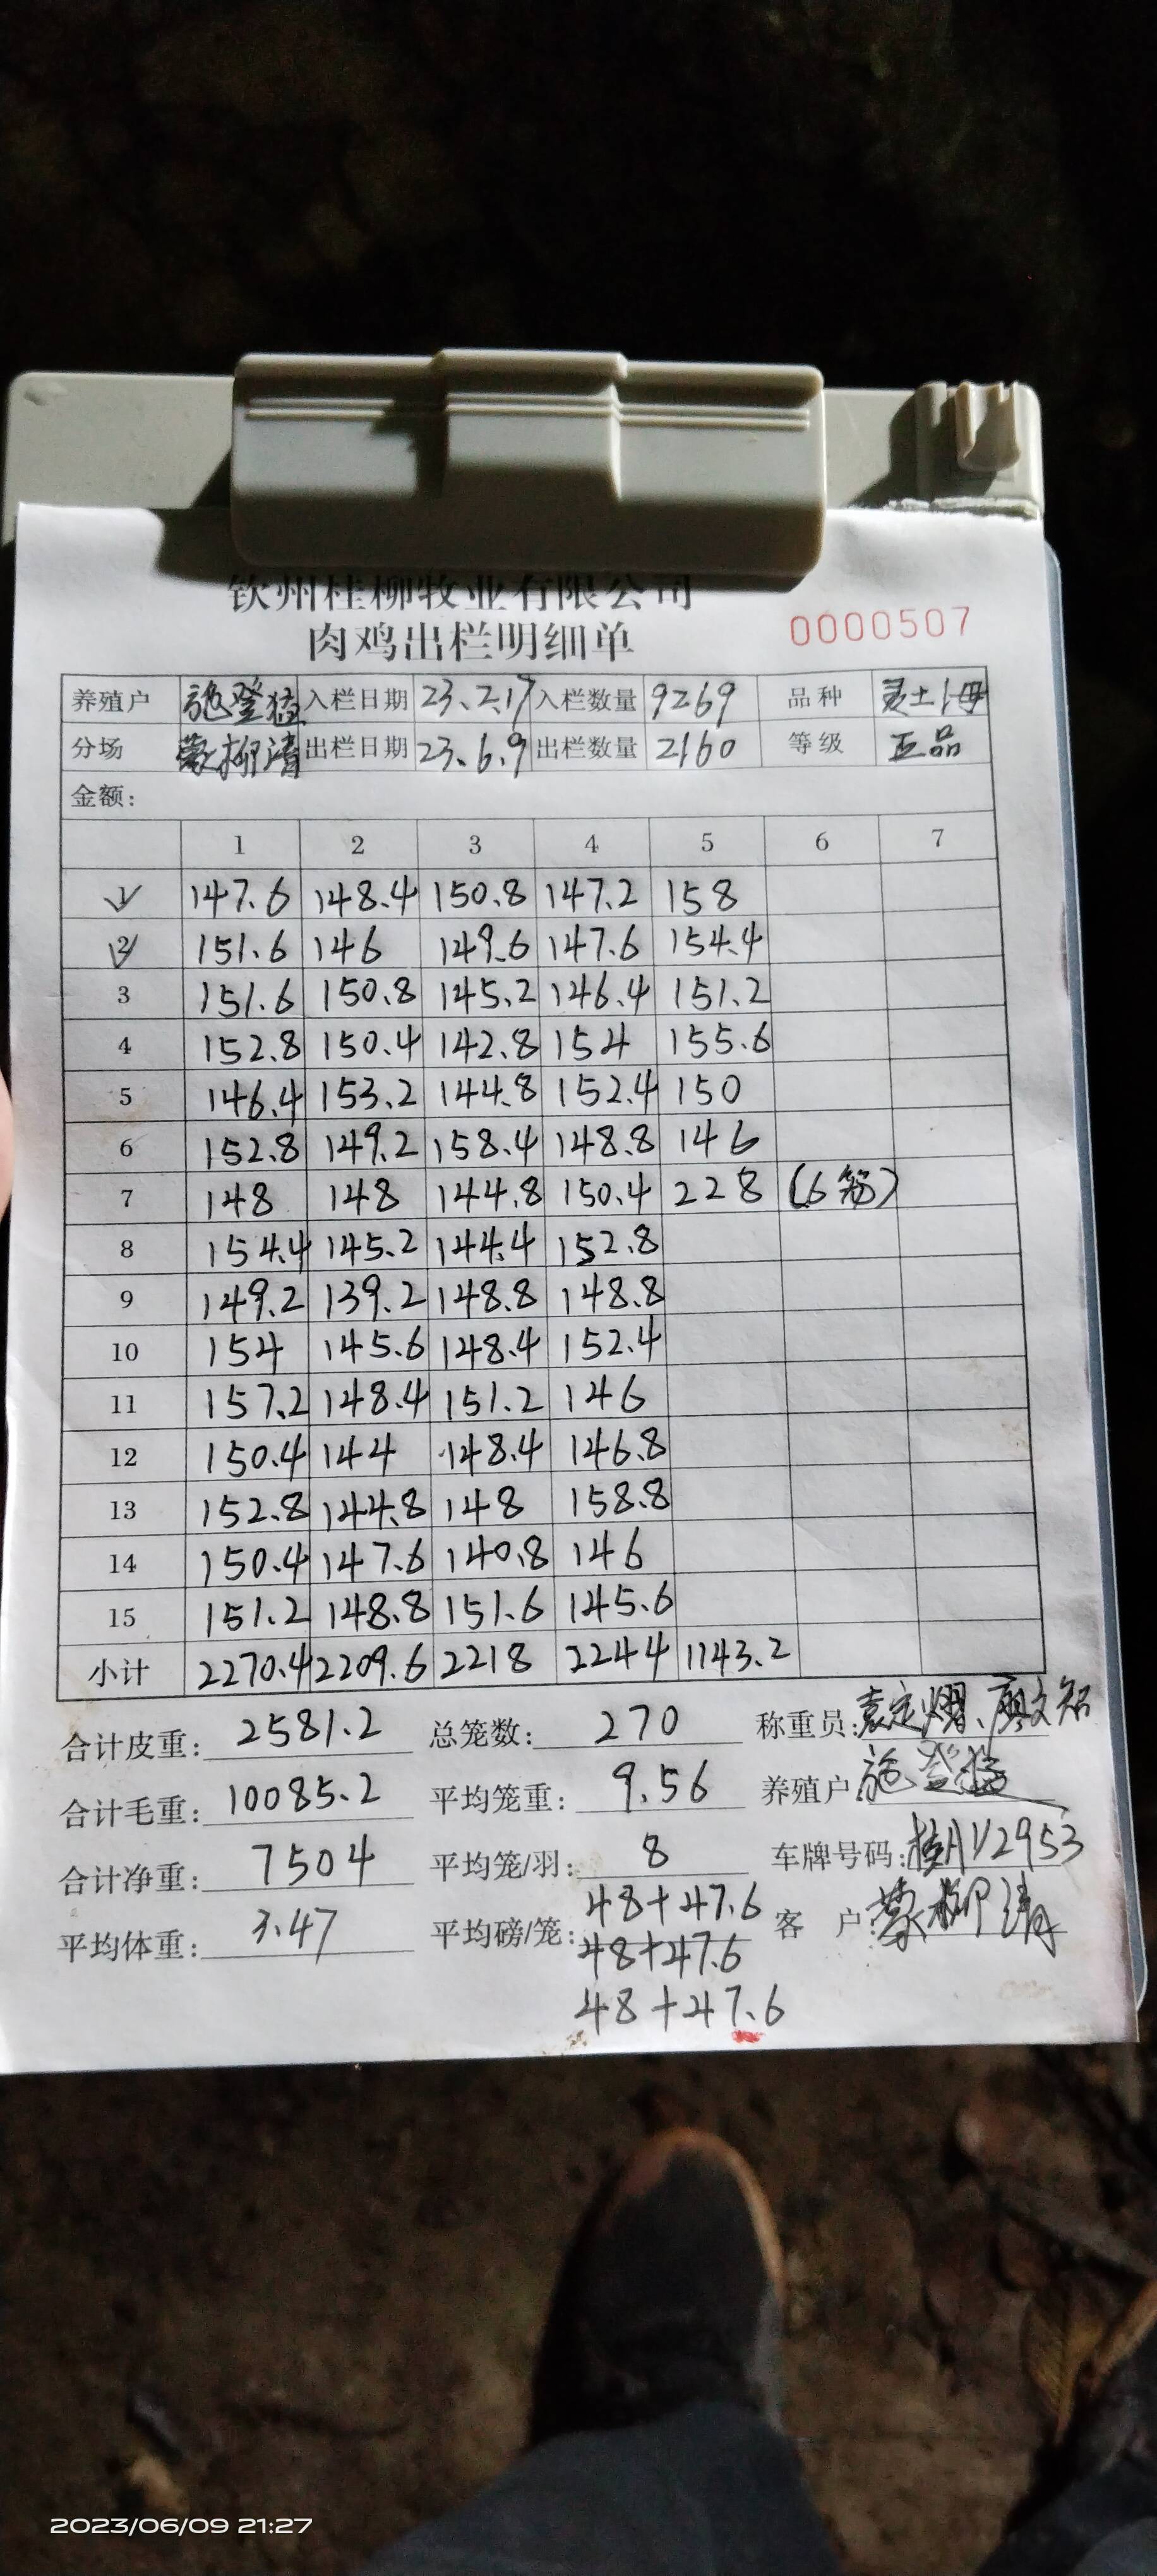 钦州桂柳牧业有限公司
肉鸡出栏明细单 0000507
养殖户 施登猛 入栏日期 23.2.17 入栏数量 9269 品种 灵土1母
分场 蒙柳清 出栏日期 23.6.9 出栏数量 2160 等级 正品
金额:
1 2 3 4 5 6 7
1 147.6 148.4 150.8 147.2 158
2 151.6 146 149.6 147.6 154.4
3 151.6 150.8 145.2 146.4 151.2
4 152.8 150.4 142.8 154 155.6
5 146.4 153.2 144.8 152.4 150
6 152.8 149.2 158.4 148.8 146
7 148 148 144.8 150.4 228 (6笼)
8 154.4 145.2 144.4 152.8
9 149.2 139.2 148.8 148.8
10 154 145.6 148.4 152.4
11 157.2 148.4 151.2 146
12 150.4 144 148.4 146.8
13 152.8 144.8 148 158.8
14 150.4 147.6 140.8 146
15 151.2 148.8 151.6 145.6
小计 2270.4 2209.6 2218 2244 1143.2
合计皮重: 2581.2 总笼数: 270 称重员: 袁定熠、廖文知
合计毛重: 10085.2 平均笼重: 9.56 养殖户 施登猛
合计净重: 7504 平均笼/羽: 8 车牌号码: 桂AV2953
平均体重: 3.47 平均磅/笼: 48+47.6 客户: 蒙柳清
48+47.6
48+47.6
2023/06/09 21:27